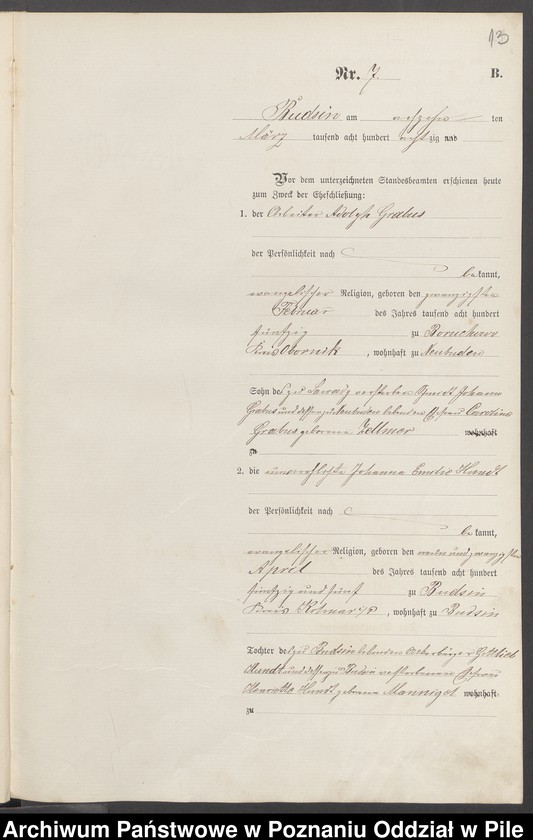 13
Nr. 7. B.
Budsin am achtzehn ten
März tausend acht hundert achtzig und
Vor dem unterzeichneten Standesbeamten erschienen heute
zum Zweck der Eheschließung:
1. der Arbeiter Adolph Grabus
der Persönlichkeit nach
bekannt,
evangelischer Religion, geboren den zwanzigsten
Februar des Jahres tausend acht hundert
fünfzig zu Boruchowo
Kreis Obornik, wohnhaft zu Neubuden
Sohn des zu verstorbenen Johann
Grabus und dessen zu Neubuden lebenden Ehefrau Caroline
Grabus geborene Zellmer wohnhaft
zu
2. die unverehelichte Johanna Emilie Hundt
der Persönlichkeit nach
bekannt,
evangelischer Religion, geboren den und zwanzigsten
April des Jahres tausend acht hundert
fünfzig und fünf zu Budsin
Kreis Kolmar i/P, wohnhaft zu Budsin
Tochter des zu Budsin lebenden Ackerbürger Gottlieb
Hundt und dessen zu Budsin verstorbenen Ehefrau
Henriette Hundt geborene wohnhaft
zu
Archiwum Państwowe w Poznaniu Oddział w Pile